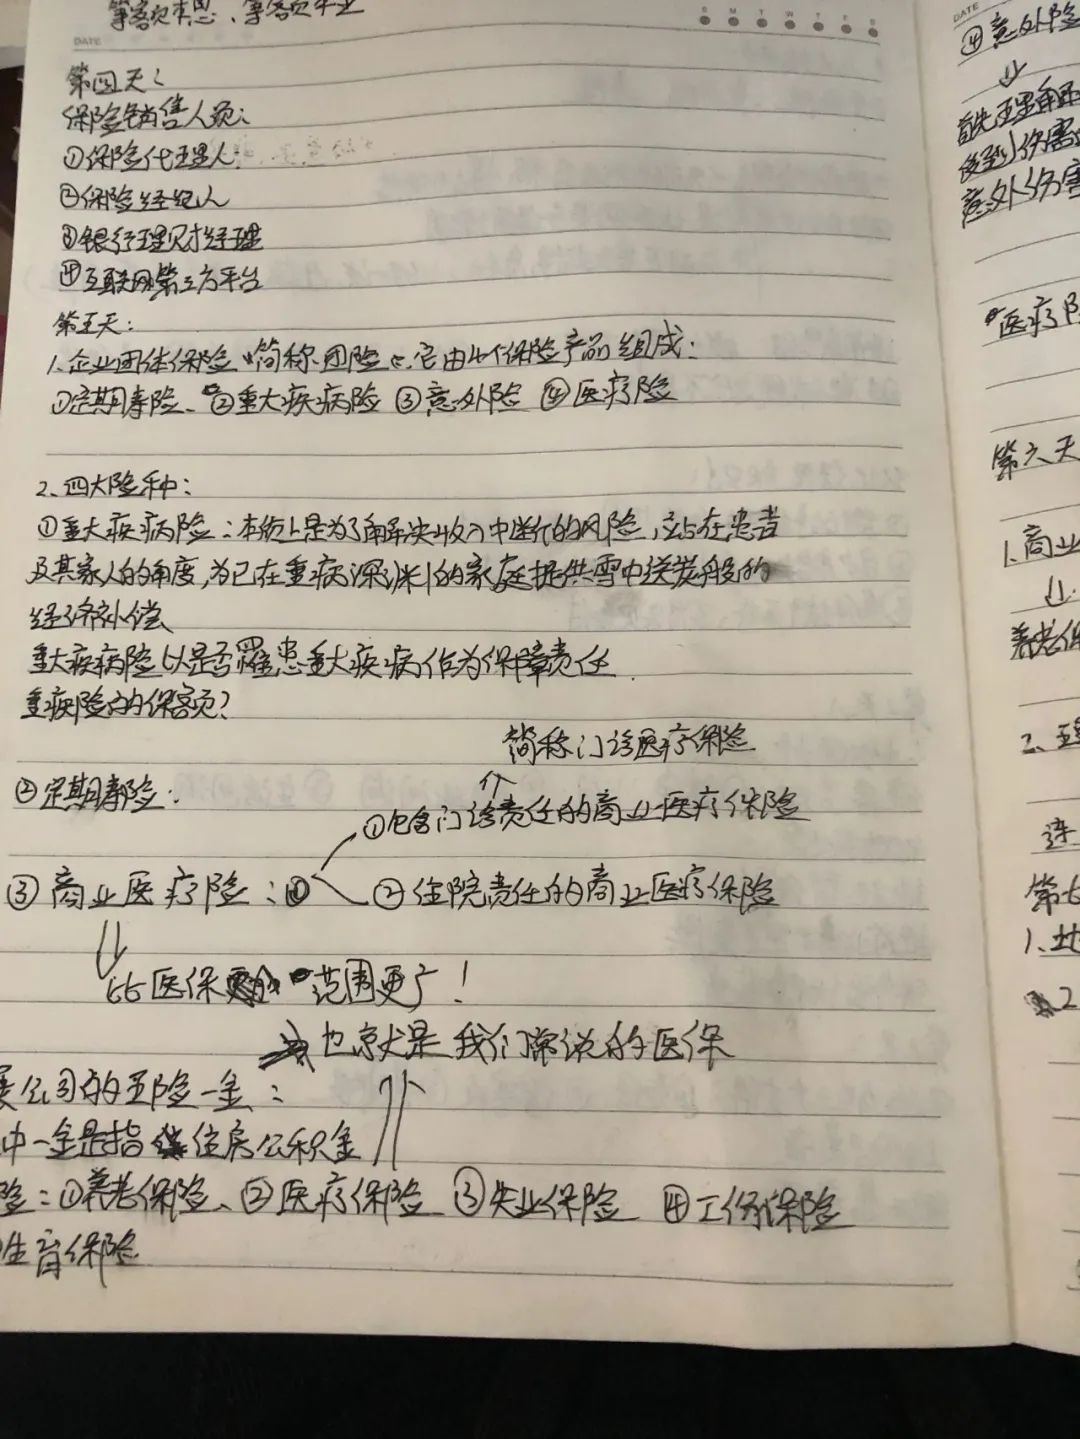 等额本息、等额本
DATE
S M T W T F S
第四天：
保险销售人员：
①保险代理人：
②保险经纪人
③银行理财经理
④互联网第三方平台
第五天：
1.企业团体保险"简称团险"，它由4个保险产品组成：
①定期寿险、②重大疾病险 ③意外险 ④医疗险
2.四大险种：
①重大疾病险：本质上是为了解决收入中断的风险，站在患者
及其家人的角度，为已在重病深渊的家庭提供雪中送炭般的
经济补偿
重大疾病险以是否罹患重大疾病作为保障责任
重疾险的保额？
简称门诊医疗保险
②定期寿险：
①包含门诊责任的商业医疗保险
③商业医疗险：
②住院责任的商业医疗保险
比医保 范围更广！
也就是我们常说的医保
公司的五险一金：
中一金是指住房公积金
险：①养老保险、②医疗保险 ③失业保险 ④工伤保险
生育保险
DATE
④意外险
首先理解
受到伤害
意外伤害
医疗
第六天
1.商业
养老保
2.
第七
1.
2